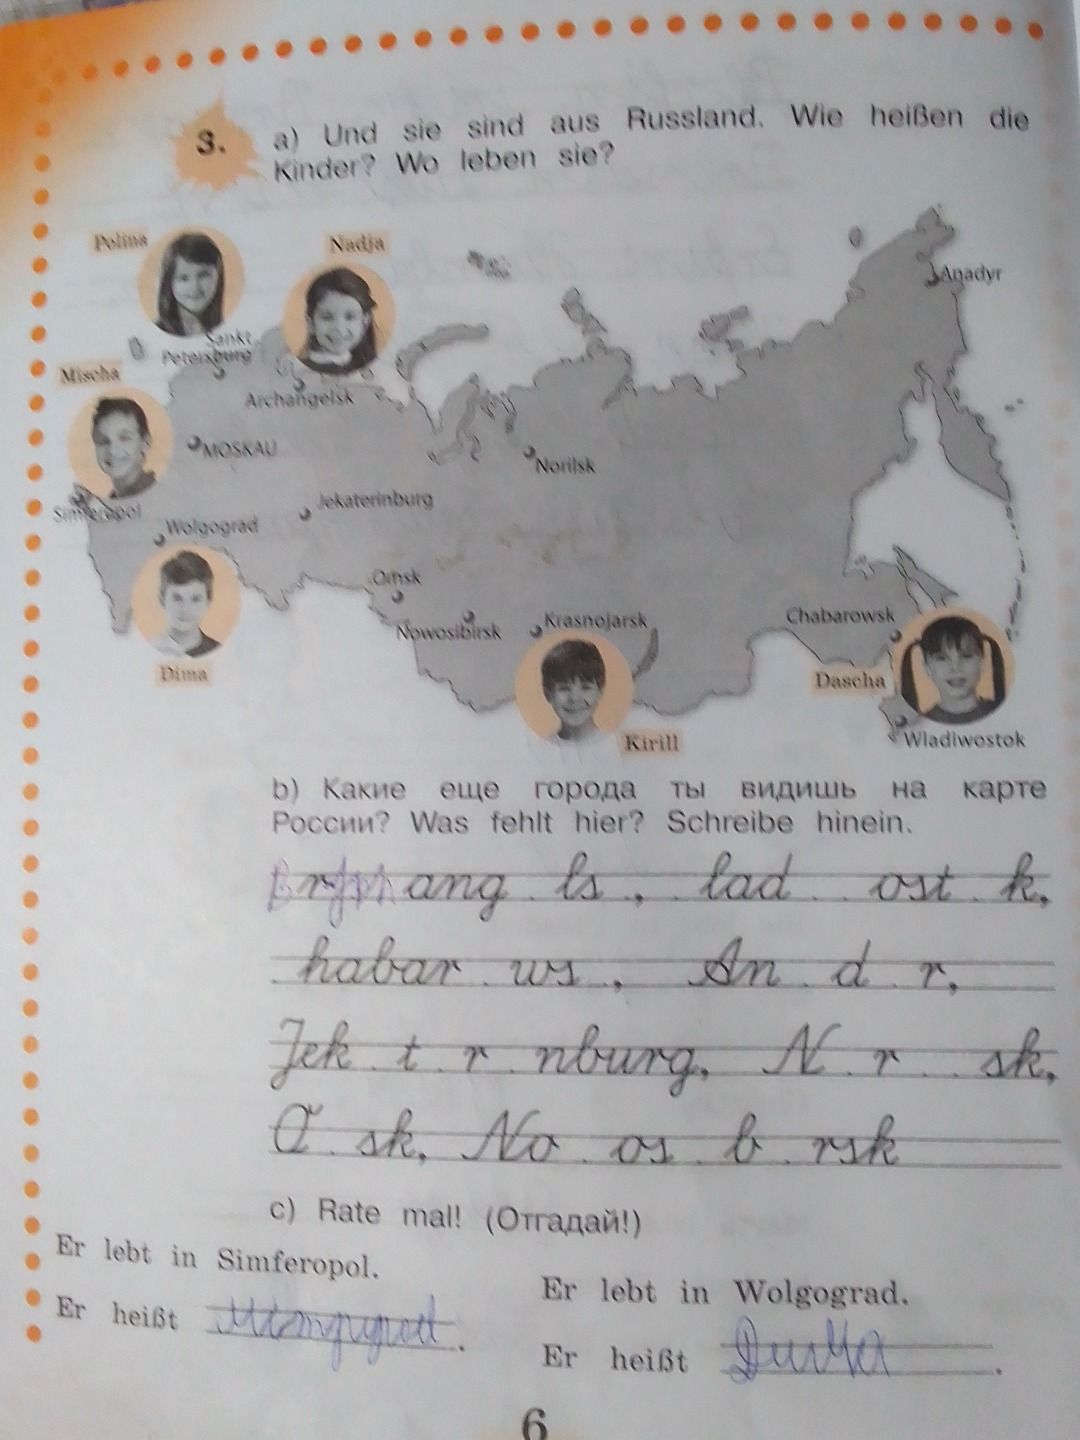 3. a) Und sie sind aus Russland. Wie heißen die
Kinder? Wo leben sie?
Polina
Nadja
Anadyr
Sankt
Petersburg
Mischa
Archangelsk
MOSKAU
Norilsk
Simferopol
Jekaterinburg
Wolgograd
Omsk
Nowosibirsk
Krasnojarsk
Chabarowsk
Dima
Dascha
Kirill
Wladiwostok
b) Какие еще города ты видишь на карте
России? Was fehlt hier? Schreibe hinein.
ang . ls . , . lad . . ost . k,
. habar . ws . , An . d . r,
Jek . t . r . nburg, N . r . . sk,
O . sk, No . os . b . rsk
c) Rate mal! (Отгадай!)
Er lebt in Simferopol.
Er heißt
Er lebt in Wolgograd.
Er heißt Dima.
6